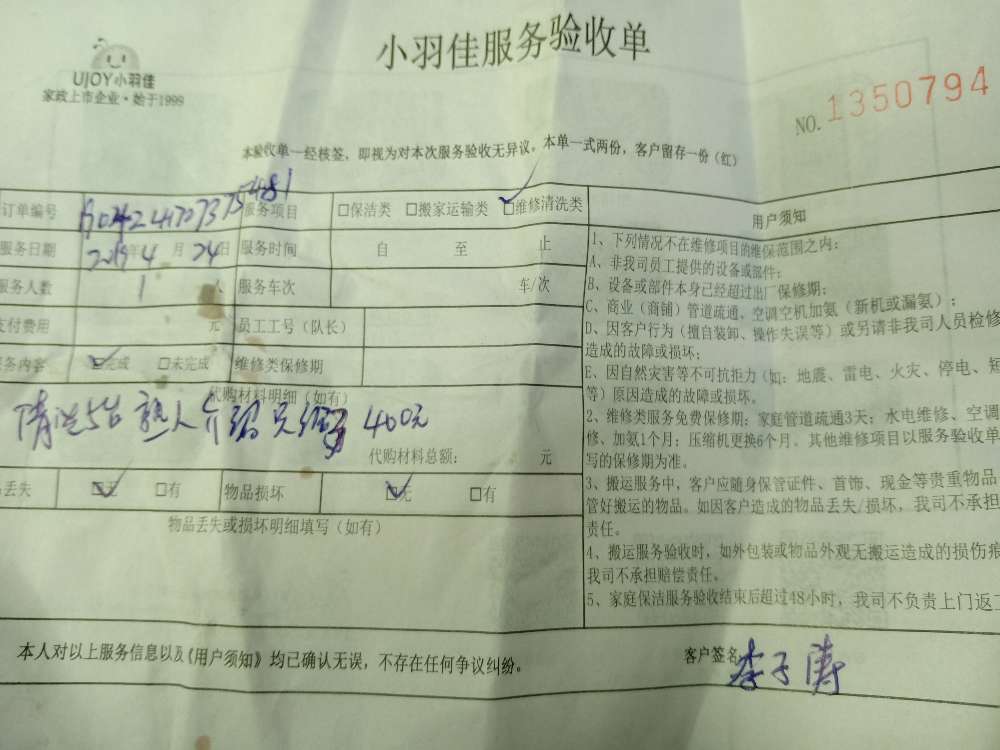 小羽佳服务验收单
UJOY小羽佳
家政上市企业·始于1999
NO. 1350794
本验收单一经核签，即视为对本次服务验收无异议，本单一式两份，客户留存一份（红）
订单编号 服务项目 □保洁类 □搬家运输类 □维修清洗类
服务日期 2019年4月24日 服务时间 自 至 止
服务人数 1人 服务车次 车/次
支付费用 元 员工工号（队长）
服务内容 □完成 □未完成 维修类保修期
代购材料明细（如有）
清洗5台 熟人介绍 400元
代购材料总额： 元
品丢失 □无 □有 物品损坏 □无 □有
物品丢失或损坏明细填写（如有）
用户须知
1、下列情况不在维修项目的维保范围之内：
A、非我司员工提供的设备或部件；
B、设备或部件本身已经超过出厂保修期；
C、商业（商铺）管道疏通，空调空机加氨（新机或漏氨）；
D、因客户行为（擅自装卸、操作失误等）或另请非我司人员检修
造成的故障或损坏；
E、因自然灾害等不可抗拒力（如：地震、雷电、火灾、停电、短
等）原因造成的故障或损坏。
2、维修类服务免费保修期：家庭管道疏通3天；水电维修、空调
修、加氨1个月；压缩机更换6个月。其他维修项目以服务验收单
写的保修期为准。
3、搬运服务中，客户应随身保管证件、首饰、现金等贵重物品
管好搬运的物品。如因客户造成的物品丢失/损坏，我司不承担
责任。
4、搬运服务验收时，如外包装或物品外观无搬运造成的损伤痕
我司不承担赔偿责任。
5、家庭保洁服务验收结束后超过48小时，我司不负责上门返工
本人对以上服务信息以及《用户须知》均已确认无误，不存在任何争议纠纷。
客户签名 李子涛